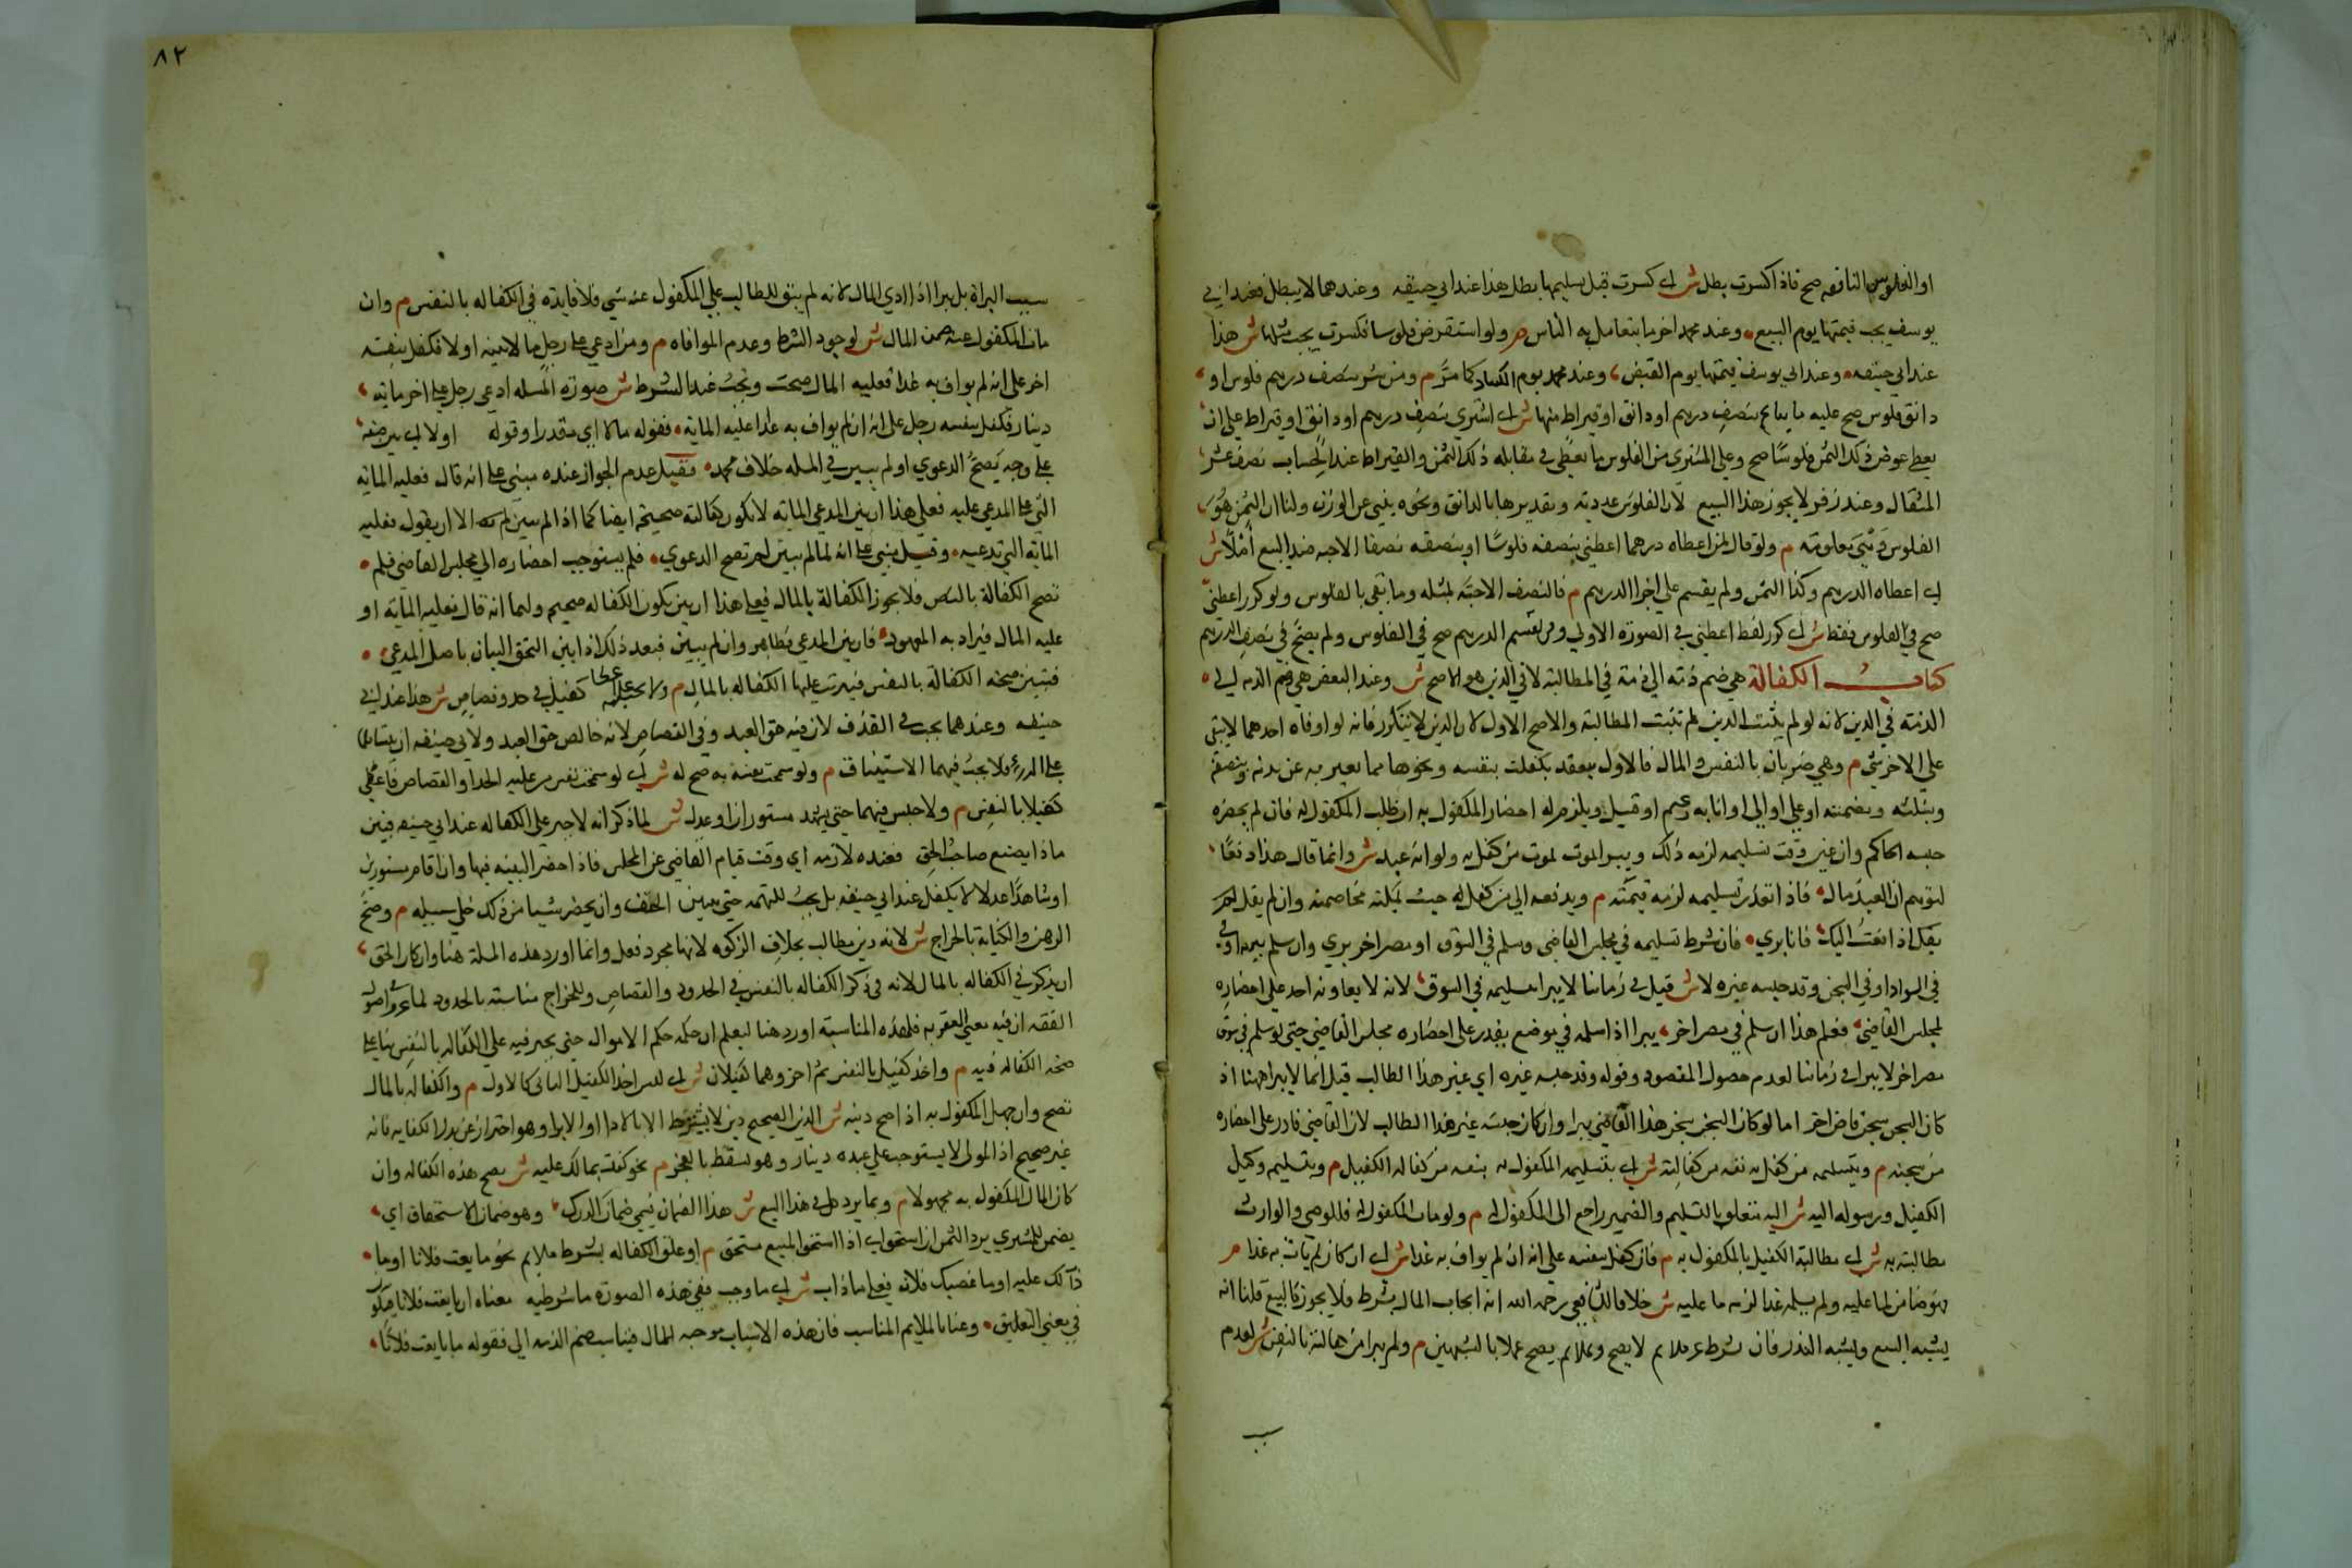 او الفلوس النافقه صح فاذا كسرت بطل ش اي كسرت قبل تسليمها بطل هذا عند ابي حنيفه وعندهما لا يبطل فعند ابي
يوسف يجب قيمتها يوم البيع وعند محمد اخر ما يتعامل به الناس م ولو استقرض فلوسا فكسرت يجب مثلها ش هذا
عند ابي حنيفه وعند ابي يوسف قيمتها يوم القبض وعند محمد يوم الكساد كما مر م ومن شري بنصف درهم فلوس او
دانق فلوس صح عليه ما يباع بنصف درهم او دانق او قيراط منها ش اي اشتري بنصف درهم او دانق او قيراط علي ان
يعطي عوض ذلك الثمن فلوسا صح وعلي المشتري من الفلوس ما يعطي في مقابله ذلك الثمن والقيراط عند الحساب نصف عشر
المثقال وعند زفر لا يجوز هذا البيع لان الفلوس عدديه وتقديرها بالدانق ونحوه ينبي عن الوزن ولنا ان الثمن هو
الفلوس وهي معلومة م ولو قال لمن اعطاه درهما اعطني بنصفه فلوسا وبنصفه نصفا الا حبه فسد البيع اصلا ش
اي اعطاه الدرهم وكذا الثمن ولم يقسم علي اجزا الدرهم م فالنصف الا حبة بمثله وما بقي بالفلوس ولو كرر اعطني
صح في الفلوس فقط ش اي كرر لفظ اعطني في الصورة الاولي ومن تقسم الدرهم صح في الفلوس ولم يصح في نصف الدرهم
كتاب الكفالة هي ضم ذمة الي ذمة في المطالبة لا في الدين هو الاصح ش وعند البعض هي ضم الذمه الي
الذمة في الدين لانه لو لم يثبت الدين لم تثبت المطالبة والاصح الاول لان الدين لا يتكرر فانه لو اوفاه احدهما لا يبقي
علي الاخر شي م وهي ضربان بالنفس والمال فالاول ينعقد بكفلت بنفسه ونحوها مما يعبر به عن بدنه وبنصفه
وبثلثه وبضمنته او علي او الي او انا به زعيم او قبيل ويلزمه احضار المكفول به ان طلب المكفول له فان لم يحضره
حبسه الحاكم وان عين وقت تسليمه لزمه ذلك ويبرا بموت من كفل به ولو انه عبد ش وانما قال هذا دفعا
لتوهم ان العبد مال فاذا تعذر تسليمه لزمه قيمته م ويدفعه الي من كفل له حيث يمكنه مخاصمته وان لم يقل
بكل اذا دفعت اليك فانا بري فان شرط تسليمه في مجلس القاضي وسلم في السوق او مصر اخر بري وان سلم ببريه او
في السواد او في السجن وقد حبسه غيره لا ش قيل في زماننا لا يبرا بتسليمه في السوق لانه لا يعاونه احد علي احضاره
لمجلس القاضي فعلم هذا ان سلم في مصر اخر يبرا اذا سلمه في موضع يقدر علي احضاره مجلس القاضي حتي لو سلم في سوق
مصر اخر لا يبرا في زماننا لعدم حصول المقصود وقوله وقد حبسه غيره اي غير هذا الطالب قيل انما لا يبرا ههنا اذ
كان السجن سجن قاض اخر اما لو كان السجن سجن هذا القاضي يبرا وان كان حبسه غير هذا الطالب لان القاضي قادر علي احضاره
من سجنه م وبتسليمه من كفل به نفسه من كفالته ش اي بتسليمه المكفول به بنفسه من كفاله الكفيل م وبتسليم وكيل
الكفيل ورسوله اليه ش اليه متعلق بالتسليم والضمير راجع الي المكفول له م ولو مات المكفول له فللوصي والوارث
مطالبته به ش اي مطالبة الكفيل بالمكفول به م فان كفل بنفسه علي انه ان لم يواف به غدا ش اي ان كان لم يات به غدا م
فهو ضامن لما عليه ولم يسلمه غدا لزمه ما عليه ش خلافا للشافعي رحمه الله انه ايجاب المال بشرط فلا يجوز كالبيع قلنا انه
يشبه البيع ويشبه النذر فان شرط غير ملايم لا يصح وبملايم يصح عملا بالشبهين م ولم يبرا من كفالته بالنفس ش لعدم
ب
٨٢
سبب البراة بل يبرا اذا ادي المال لانه لم يبق للطالب علي المكفول عنه شي فلا فايدة في الكفاله بالنفس م وان
مات المكفول عنه ضمن المال ش لوجود الشرط وعدم الموافاه م ومن ادعي علي رجل مالا بينه او لا فكفل بنفسه
اخر علي انه لم يواف به غدا فعليه المال صحت ويجب عند الشرط ش صورة المسله ادعي رجل علي اخر مايه
دينار فكفل بنفسه رجل علي انه ان لم يواف به غدا عليه الماية فقوله مالا اي مقدرا وقوله او لا اي بين صفته
علي وجه يصح الدعوي او لم يبين في المسله خلاف محمد فقيل عدم الجواز عنده مبني علي انه قال فعليه الماية
التي علي المدعي عليه فعلي هذا ان بين المدعي الماية لا تكون كفالته صحيحه ايضا كما اذا لم يبين الا ان يقول فعليه
الماية التي تدعيه وقيل مبني علي انه لما لم يبين لم تصح الدعوي فلم يستوجب احضاره الي مجلس القاضي فلم
تصح الكفالة بالنفس فلا يجوز الكفالة بالمال فعلي هذا ان بين يكون الكفاله صحيحه ولهما انه قال فعليه الماية او
عليه المال فيراد به المعهود فان بين المدعي فظاهر وان لم يبين فبعد ذلك اذا بين التحق البيان باصل المدعي
فتبين صحة الكفالة بالنفس فيترتب عليها الكفاله بالمال م ولا يجبر علي اعطا كفيل في حد وقصاص ش هذا عند ابي
حنيفه وعندهما يجب في القذف لان فيه حق العبد وفي القصاص لانه خالص حق العبد ولابي حنيفه ان بناءهما
علي الدرء فلا يجب فيهما الاستيثاق م ولو سمحت نفسه به صح له ش اي لو سمحت نفس من عليه الحد او القصاص فاعطي
كفيلا بالنفس م ولا حبس فيهما حتي يشهد مستوران او عدل ش لما ذكر انه لا جبر علي الكفاله عند ابي حنيفه فبين
ماذا يصنع صاحب الحق فعنده لازمه اي وقت قيام القاضي عن المجلس فاذا حضر البينه فبها وان اقام مستورين
او شاهدا عدلا لا يكفل عند ابي حنيفه بل يجب للتهمه حتي يتبين الحق وان يحضر شيا من ذلك خلي سبيله م وصح
الرهن والكفاية بالخراج ش لانه دين مطالب بخلاف الزكوه لانها مجرد فعل وانما اورد هذه المسلة هنا وان كان الحق
ان يذكر في الكفاله بالمال لانه في ذكر الكفاله بالنفس في الحدود والقصاص وللخراج مناسبة بالحدود لما عرف في اصول
الفقه ان فيه معني العقوبه فلهذه المناسبة اورد هنا ليعلم ان حكمه حكم الاموال حتي يجبر فيه علي الكفاله بالنفس بناء علي
صحة الكفاله فيه م واخذ كفيل بالنفس ثم اخر وهما كفيلان ش اي ليس اخذ الكفيل الثاني كالاول م والكفاله بالمال
تصح وان جهل المكفول به اذا صح دينه ش الدين الصحيح دين لا يسقط الا بالادا او الابرا وهو احتراز عن بدل الكتابه فانه
غير صحيح اذ المولي لا يستوجب علي عبده دينار وهو يسقط بالعجز م نحو كفلت بمالك عليه ش يصح هذه الكفاله وان
كان المال المكفول به مجهولا م وبما يدركك في هذا البيع ش هذا الضمان يسمي ضمان الدرك وهو ضمان الاستحقاق اي
يضمن للمشتري برد الثمن ان استحق اي اذا استحق المبيع مستحق م او علق الكفاله بشرط ملايم نحو ما بايعت فلانا او ما
ذاب لك عليه او ما غصبك فلان فعلي ما ذاب ش اي ما وجب ففي هذه الصورة ما شرطيه معناه ان بايعت فلانا فيكون
في معني التعليق وعنا بالملايم المناسب فان هذه الاسباب موجبه للمال فيناسب ضم الذمه الي فقوله ما بايعت فلانا